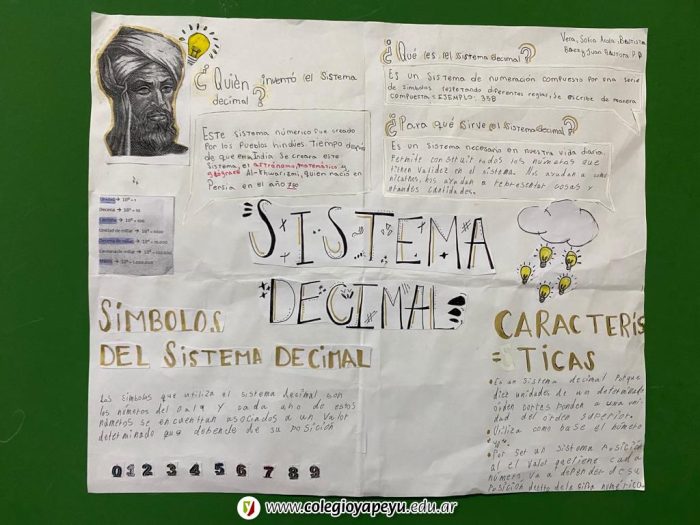 Vera, Sofía
Juan Bautista P.P
¿Quién inventó el Sistema
decimal?
Este sistema númerico fue creado
Por los Pueblos hindúes. Tiempo después
de que en India se creara este
Sistema, el astrónomo, matemático y
geógrafo Al-Khwarizmi, quien nació en
Persia en el año 780
¿Qué es el Sistema decimal?
Es un Sistema de numeración compuesto por una serie
de símbolos respetando diferentes reglas, se escribe de manera
compuesta = EJEMPLO: 358
¿Para qué sirve el Sistema decimal?
Es un sistema necesario en nuestra vida diaria.
Permite construir todos los números que
tienen validez en el sistema. Nos ayudan a comu
nicarnos, nos ayudan a representar cosas y
grandes cantidades.
Unidad → 10⁰ = 1
Decena → 10¹ = 10
Centena → 10² = 100
Unidad de millar → 10³ = 1000
Decena de millar → 10⁴ = 10.000
Centena de millar → 10⁵ = 100.000
Millón → 10⁶ = 1.000.000
SISTEMA
DECIMAL
SÍMBOLOS
DEL SISTEMA DECIMAL
Los símbolos que utiliza el sistema decimal son
los números del 0 al 9 y cada uno de estos
números se encuentran asociados a un valor
determinado que depende de su posición
0 1 2 3 4 5 6 7 8 9
CARACTERÍS
TICAS
Es un sistema decimal Porque
diez unidades de un determinado
orden corresponden a una uni
dad del orden superior.
Utiliza como base el número
Por ser un sistema Posición
al el valor que tiene cada
número, va a depender de su
posición dentro de la cifra numérica.
www.colegioyapeyu.edu.ar